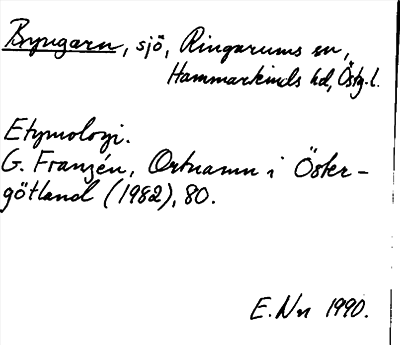 Byngaren, sjö, Ringarums sn,
Hammarkinds hd, Östg.l.
Etymologi.
G. Franzén, Ortnamn i Öster-
götland (1982), 80.
E. Nn 1990.